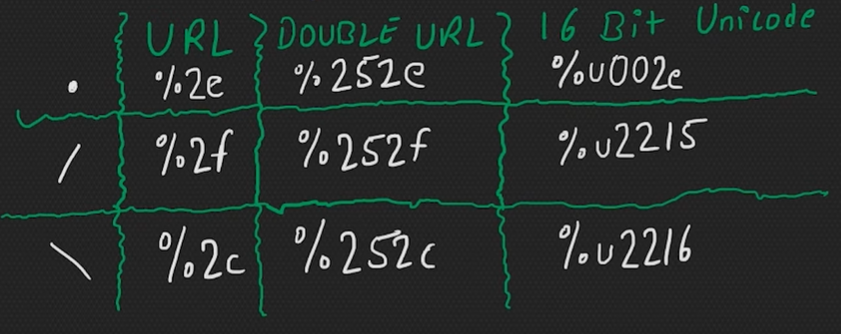 URL DOUBLE URL 16 Bit Unicode
. %2e %252e %u002e
/ %2f %252f %u2215
\ %2c %252c %u2216